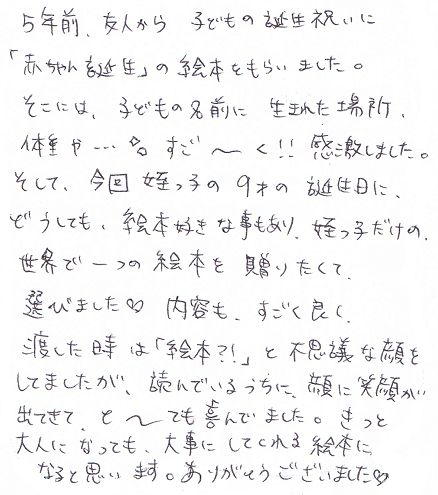 5年前、友人から 子どもの誕生祝いに
「赤ちゃん誕生」の絵本をもらいました。
そこには、子どもの名前に 生まれた場所、
体重や…♪♪ すご〜く!! 感激しました。
そして、今回 姪っ子の 9才の 誕生日に、
どうしても、絵本好きな事もあり、姪っ子だけの、
世界で一つの絵本を 贈りたくて、
選びました♡ 内容も、すごく良く、
渡した時は「絵本?!」と不思議な顔を
してましたが、読んでいるうちに、顔に笑顔が
出てきて、と〜っても喜んでました。きっと
大人になっても、大事にしてくれる絵本に
なると思います。ありがとうございました♡